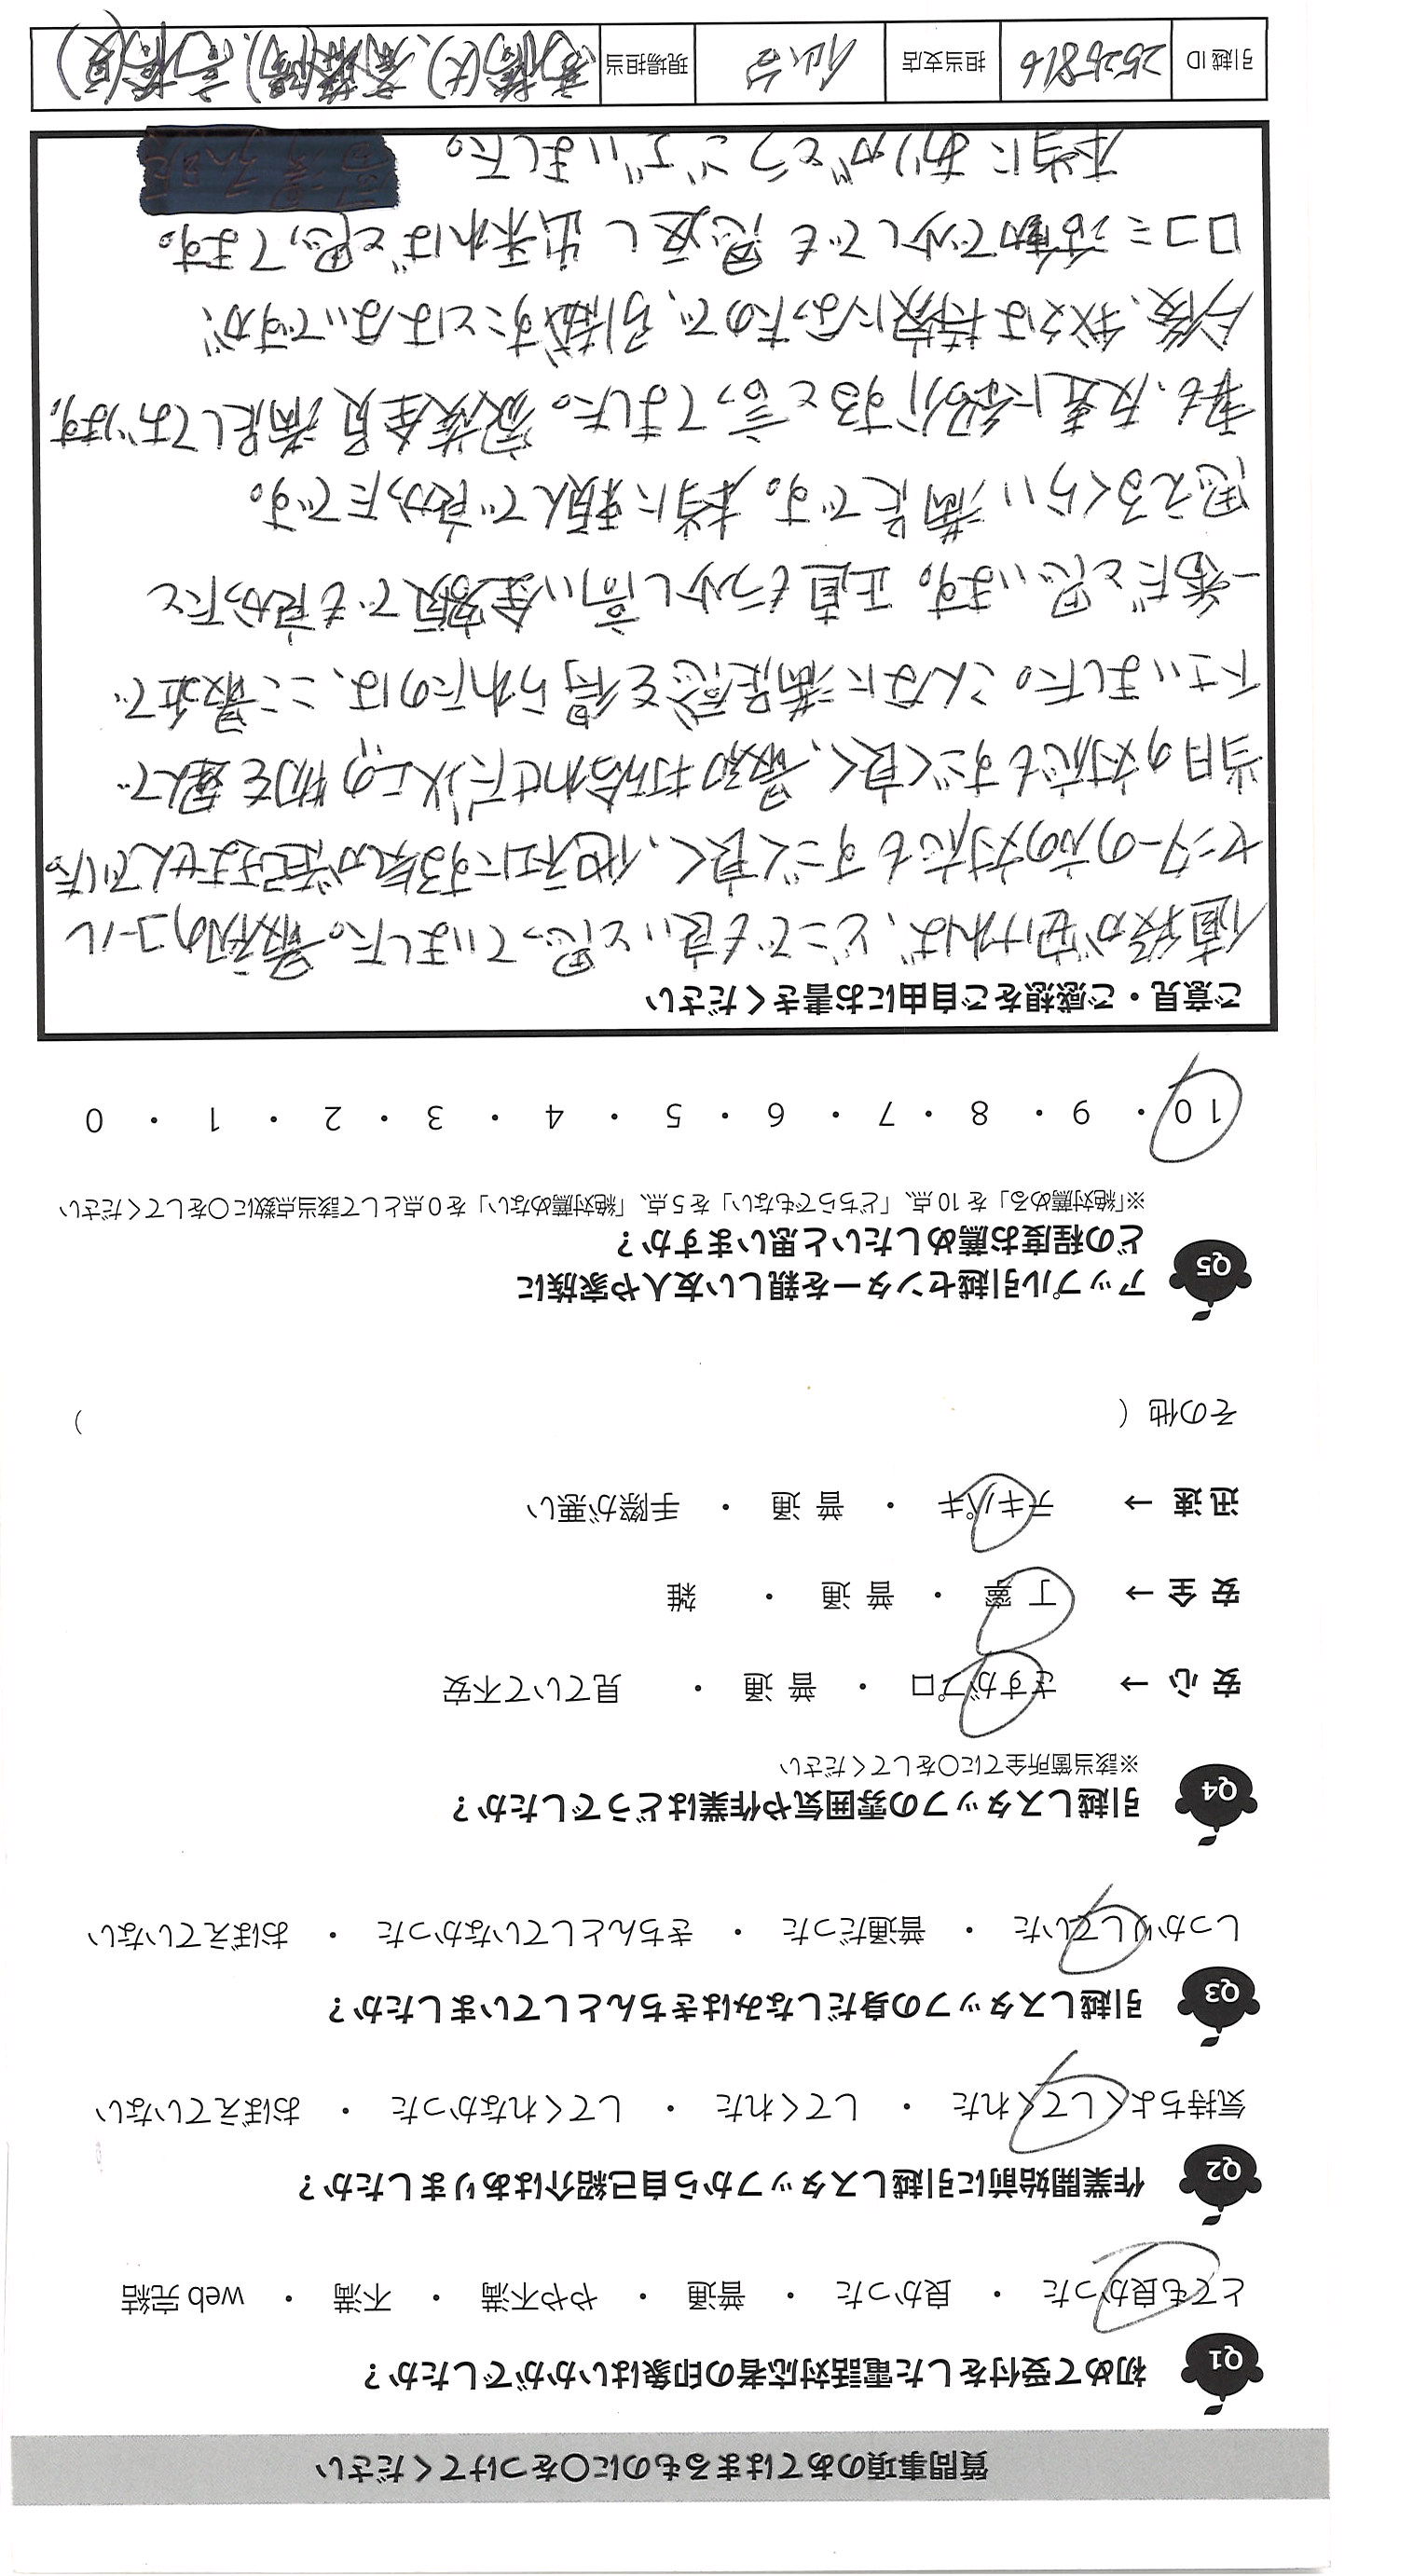 質問事項のあてはまるものに〇をつけてください
Q1 初めて受付をした電話対応者の印象はいかがでしたか？
とても良かった ・ 良かった ・ 普通 ・ やや不満 ・ 不満 ・ web完結
Q2 作業開始前に引越しスタッフから自己紹介はありましたか？
気持ちよくしてくれた ・ してくれた ・ してくれなかった ・ おぼえていない
Q3 引越しスタッフの身だしなみはきちんとしていましたか？
しっかりしていた ・ 普通だった ・ きちんとしていなかった ・ おぼえていない
Q4 引越しスタッフの雰囲気や作業はどうでしたか？
※該当箇所全てに〇をしてください
安心 → さすがプロ ・ 普通 ・ 見ていて不安
安全 → 丁寧 ・ 普通 ・ 雑
迅速 → テキパキ ・ 普通 ・ 手際が悪い
その他（ ）
Q5 アップル引越センターを親しい友人や家族に
どの程度お薦めしたいと思いますか？
※「絶対薦める」を10点、「どちらでもない」を5点、「絶対薦めない」を0点として該当点数に〇をしてください
10 ・ 9 ・ 8 ・ 7 ・ 6 ・ 5 ・ 4 ・ 3 ・ 2 ・ 1 ・ 0
ご意見・ご感想をご自由にお書きください
値段が安ければ、どこでも良いと思っていました。最初のコール
センターの方の対応もすごく良く、他社にする気が起きませんでした。
当日の対応もすごく良く、最初打ち合わせた以上の物を運んで
下さいました。こんなに満足感を得られたのは、ここ最近で
一番だと思います。正直もう少し高い金額でも良かったと
思えるくらい満足です。本当に頼んで良かったです。
妻も、友達に紹介すると言ってました。家族全員満足しております。
今後、我々は持家になったので、引越すことはないですが、
口コミ活動で少しでも恩返し出来ればと思ってます。
本当にありがとうございました。
引越ID 2525816 担当支店 仙台 現場担当 高橋(大)、斎藤(陽)、高橋(員)